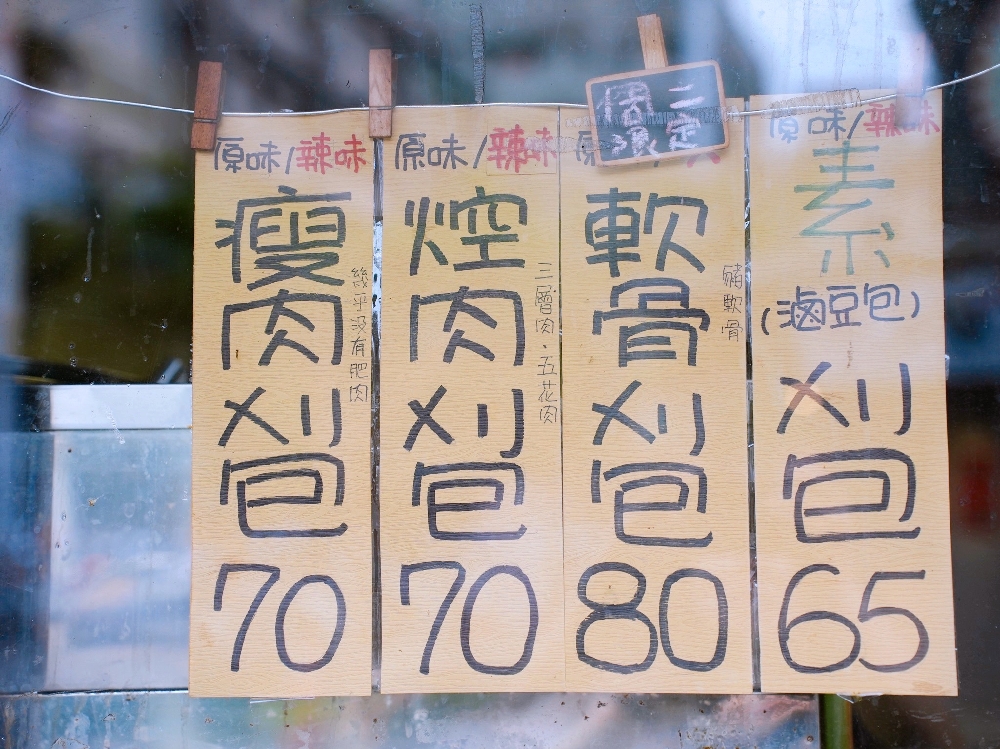 原味/辣味
瘦肉刈包
幾乎沒有肥肉
70
原味/辣味
焢肉刈包
三層肉.五花肉
70
限定
三個
軟骨刈包
豬軟骨
80
原味/辣味
素
(滷豆包)
刈包
65